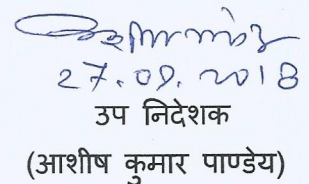 27.09.2018
उप निदेशक
(आशीष कुमार पाण्डेय)